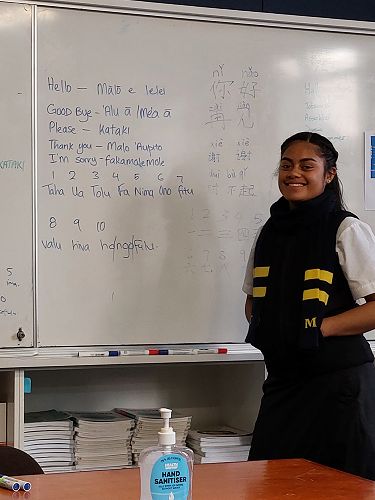 Hello — Mālō e lelei
Good Bye - 'Alu ā / Mo'o ā
Please — Kataki
Thank you — Malo 'Aupito
I'm sorry - fakamolemole
1 2 3 4 5 6 7
Taha Ua Tolu Fa Nima Ono fitu
8 9 10
valu hiva hongofulu
nǐ hǎo
你好
zài jiàn
再见
xiè xiè
谢谢
duì bù qǐ
对不起
1 2 3 4 5
一 二 三 四 五
6 7 8 9
六 七 八 九
KATAKI
M
HAND
SANITISER